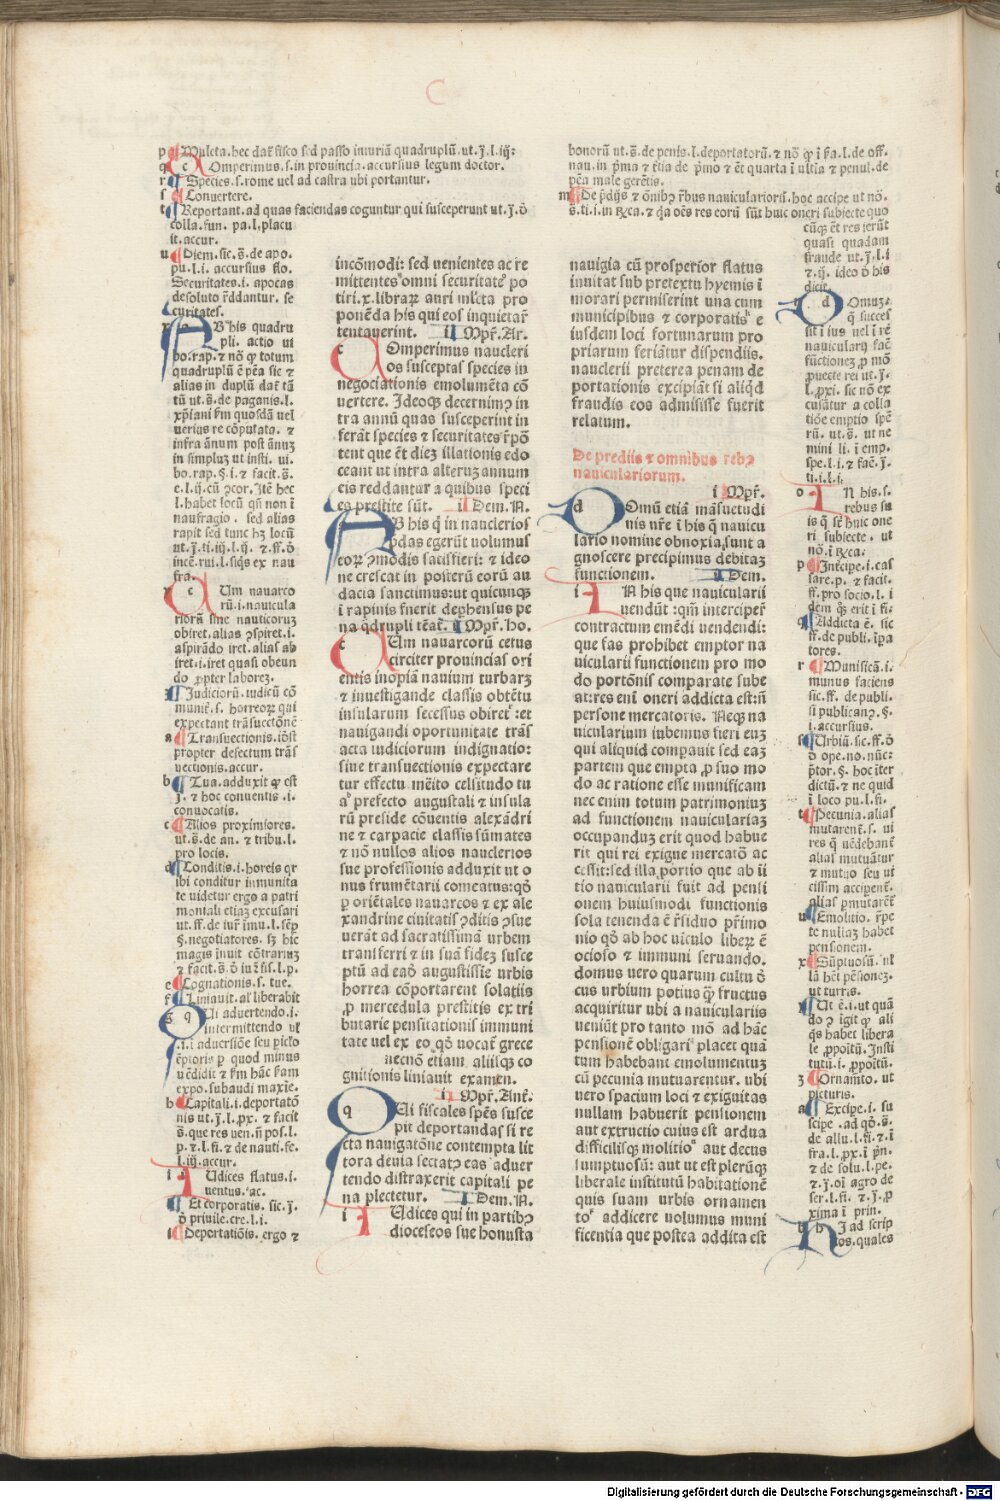 C
p Mulcta. hec dat̄ fisco sed passo iniuriā quadruplū. ut. j̄. l. iij:
q c Omperimus. s. in prouincia. accursius legum doctor.
r Species. s. rome uel ad castra ubi portantur.
s Conuertere.
t Reportant. ad quas faciendas coguntur qui susceperunt ut. j̄. ō
colla. fun. pa. l. placu
it. accur.
u Diem. sic. s̄. de apo.
pu. l. i. accursius flo.
Securitates. i. apocas
desoluto r̄ddantur. se
curitates.
x a B his quadru
pli. actio ui
bo. rap. ⁊ nō ꝙ totum
quadruplū ē pēa sic ⁊
alias in duplū dat̄ tā
tū ut. s̄. de paganis. l.
xp̄iani k̄m quosdā uel
uerius re cōputata. ⁊
infra ānum post ānuꝫ
in simpluꝫ ut insti. ui.
bo. rap. §. i. ⁊ facit. s̄.
e. l. ij. cū ꝯcor. Itē hec
l. habet locū qn̄ non ī
naufragio. sed alias
rapit sed tunc hꝫ locū
ut. j̄. ti. iij. l. ij. ⁊ ff. ō
incē. rui. l. siq̄s ex nau
fra.
c Um nauarco
rū. i. nauicula
riorū siue nauticoruꝫ
obiret. alias ꝯspiret. i.
aspirādo iret. alias ab
iret. i. iret quasi obeun
do ꝓpter laboreꝫ.
Judiciorū. iudicū cō
munit̄. s. horreoꝝ qui
expectant trāsuectōnē
a Transuectionis. iōst
propter defectum trās
uectionis. accur.
b Tua. adduxit ꝙ est
j̄. ⁊ hoc conuentis. i.
conuocatis.
c Alios proximiores.
ut. s̄. de an. ⁊ tribu. l.
pro locis.
d Conditis. i. horeis qr
ibi conditur inmunita
te uidetur ergo a patri
moniali etiaꝫ excusari
ut. ff. de iur̄ īmu. l. sēp
§. negotiatores. sꝫ hic
magis inuit cōtrariuꝫ
⁊ facit. s̄. ō iur̄ fis. l. p.
e Cognationis. s. tue.
f Liniauit. al̄ liberabit
g q Ui aduertendo. i.
intermittendo ul̄
.i. i aduersiōe seu piclo
ēptoris p quod minus
uēdidit ⁊ k̄m hāc k̄am
expo. subaudi maxīe.
h Capitali. i. deportatō
nis ut. j̄. l. px. ⁊ facit
s̄. que res uen. n̄ pos. l.
p. ⁊ l. fi. ⁊ de nauti. fe.
l. iij. accur.
i Udices flatus. i.
uentus. ac.
Et corporatis. sic. j̄.
ō priuile. cre. l. i.
l Deportatiōis. ergo ⁊
incōmodi: sed uenientes ac re
mittentes omni securitate po
tiri. x. libraꝝ auri mlcta pro
ponēda his qui eos inquietar̄
tentauerint. ii Mpr̄. Ar.
c Omperimus naucleri
os susceptas species in
negociationis emolumēta cō
uertere. Ideoqꝫ decernimꝰ in
tra annū quas susceperint in
ferāt species ⁊ securitates r̄pō
tent que ēt dieꝫ illationis edo
ceant ut intra alteruꝫ annum
eis reddantur a quibus speci
es prestite sūt. ii Dem. A.
B his q̄ in nauclerios
p̄das egerūt uolumus
eoꝝ ꝯmodis satisfieri: ⁊ ideo
ne crescat in posterū eorū au
dacia sanctimus: ut quicunqꝫ
ī rapinis fuerit dephensus pe
na q̄drupli tēat̄. i Mpr̄. ho.
c Um nauarcorū cetus
circiter prouincias ori
entis inopiā nauium turbarꝫ
⁊ inuestigande classis obtētu
insularum secessus obiret: et
nauigandi oportunitate trās
acta iudiciorum indignatio:
siue transuectionis expectare
tur effectu mēito celsitudo tu
a prefecto augustali ⁊ insula
rū preside cōuentis alexādri
ne ⁊ carpacie classis sūmates
⁊ nō nullos alios nauclerios
sue professionis adduxit ut o
nus frumētarii comeatus: qō
p oriētales nauarcos ⁊ ex ale
xandrine ciuitatis ꝯditis ꝯsue
uerāt ad sacratissimā urbem
transferri ⁊ in suā fidez susce
ptū ad eaō augustissīe urbis
horrea cōportarent solatiis
ꝓ mercedula prestitis ex tri
butarie pensitationis immuni
tate uel ex eo qō uocat̄ grece
necnō etiam aliisqꝫ co
gnitionis liniauit examen.
ii Mpr̄. Ant̄.
q Ui fiscales spēs susce
pit deportandas si re
cta nauigatōne contempta lit
tora deuia sectatꝰ eas aduer
tendo distraxerit capitali pe
na plectetur. i Dem. A.
i Udices qui in partibꝰ
dioceseos sue honusta
bonorū ut. s̄. de penis. l. deportatorū. ⁊ nō ꝙ ī k̄a. l. de off.
nau. in p̄ma ⁊ t̄tia de p̄mo ⁊ ēt quarta ī ultīa ⁊ penul. de
pēa male gerētis.
m De p̄dijs ⁊ ōnibꝰ r̄bus nauiculariorū. hoc accipe ut nō.
s̄. ti. i. in ꝶca. ⁊ q̄a oēs res eorū sūt huic oneri subiecte quo
cūqꝫ ēt res ierūt
quasi quadam
fraude ut. j̄. l. i
⁊. ij. ideo ō his
dicit.
navigia cū prosperior flatus
inuitat sub pretextu hyemis ī
morari permiserint una cum
municipibus ⁊ corporatis e
iusdem loci fortunarum pro
priarum feriātur dispendiis.
nauclerii preterea penam de
portationis excipiāt si aliq̄d
fraudis eos admisisse fuerit
relatum.
De prediis ⁊ omnibus rebꝰ
nauiculariorum.
i Mpr̄.
d Omū etiā māsuetudi
nis nr̄e ī his q̄ nauicu
lario nomine obnoxia sunt a
gnoscere precipimus debitaꝫ
functionem. ii Dem.
i A his que nauicularii
uendūt: qm̄ interciper̄
contractum emēdi uendendi:
que fas prohibet emptor na
uicularii functionem pro mo
do portōnis comparate sube
at: res eni oneri addicta est: n̄
persone mercatoris. Neqꝫ na
uicularium iubemus fieri euꝫ
qui aliquid comparuit sed eaꝫ
partem que empta ꝓ suo mo
do ac ratione esse munificam
nec enim totum patrimoniuꝫ
ad functionem nauiculariaꝫ
occupanduꝫ erit quod habue
rit qui rei exigue mercatō ac
cessit: sed illa portio que ab ii
tio nauicularii fuit ad pensi
onem huiusmodi functionis
sola tenenda ē r̄siduo pr̄imo
nio qō ab hoc uiculo libeꝝ ē
ocioso ⁊ immuni seruando.
domus uero quarum cultu ō
cus urbium potius q̄ꝫ fructus
acquiritur ubi a nauiculariis
ueniūt pro tanto mō ad hāc
pensionē obligari placet quā
tum habebant emolumentuꝫ
cū pecunia mutuarentur. ubi
uero spacium loci ⁊ exiguitas
nullam habuerit pensionem
aut extructio cuius est ardua
difficilisqꝫ molitio aut decus
sumptuosū: aut ut est plerūqꝫ
liberale institutū habitationē
quis suam urbis ornamen
to addicere uolumus muni
ficentia que postea addita est
n d Omuꝫ.
q̄ succes
sit ī ius uel ī rē
nauicularij facē
fūctioneꝫ ꝓ mō
ꝓuecte rei ut. j̄.
l. ꝓxi. sic nō ex
cusātur a colla
tiōe emptio spē
rū. ut. s̄. ut ne
mini li. i emp.
spe. l. i. ⁊ facē. j̄.
ti. i. l. i.
o I N his. s.
rebus su
is q̄ sē huic one
ri subiecte. ut
nō. ī ꝶca.
p Intcipe. i. cas
sare. p. ⁊ facit.
ff. pro socio. l. i
dem q̄s erit ī fi.
q Addicta ē. sic
ff. de publi. īpa
tores.
r Munificā. i.
munus faciens
sic. ff. de publi.
si publicanꝰ. §.
i. accursius.
s Urbiū. sic. ff. ō
ō ope. no. nūc:
p̄tor. §. hoc īter
dictū. ⁊ ne quid
ī loco pu. l. fi.
t Pecunia. alias
mutarent̄. s. ui
res q̄ uēdebant̄
alias mutuātur
⁊ mutuo seu ut
cissim accipent̄.
alias pmutarēt̄
u Emolitio. r̄pe
te nullaꝫ habet
pensionem.
x Sūptuosū. ul̄
lā hēt pēsioneꝫ.
ut turris.
y Ut ē. i. ut quā
do ꝯ igit̄ ꝙ ali
q̄s habet libera
le ꝓpoītū. Insti
tutū. i. ꝓpoītū.
z Ornamto. ut
picturis.
a Excipe. i. su
scipe. ad qō. s̄.
de allu. l. fi. ⁊. i
fra. l. px. i p̄n.
⁊ de solu. l. pe.
⁊. j̄. oī agro de
ser. l. fi. ⁊. j̄. p
xima ī prin.
b h I ad scrip
tos. quales
Digitalisierung gefördert durch die Deutsche Forschungsgemeinschaft - DFG